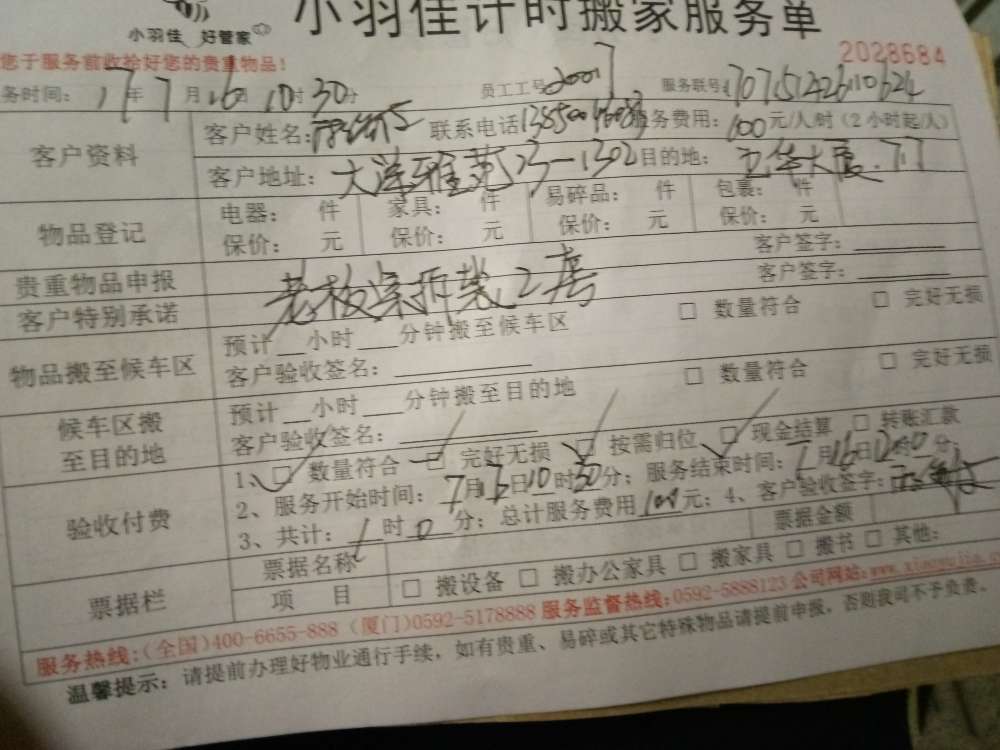 小羽佳计时搬家服务单
小羽佳 好管家
您于服务前收拾好您的贵重物品！ 2028684
务时间： 17年7月16日10时30分 员工工号 20017 服务联号
客户资料 客户姓名： 联系电话 服务费用：100元/人/时（2小时起/人）
客户地址：大洋雅苑23-1302 目的地：大厦
物品登记 电器： 件 家具： 件 易碎品： 件 包裹： 件
保价： 元 保价： 元 保价： 元 保价： 元
贵重物品申报 客户签字：
客户特别承诺 老板桌拆装2套 客户签字：
物品搬至候车区 预计__小时___分钟搬至候车区 □ 数量符合 □ 完好无损
客户验收签名：
候车区搬至目的地 预计__小时___分钟搬至目的地 □ 数量符合 □ 完好无损
客户验收签名：
验收付费 1、□ 数量符合 □ 完好无损 □ 按需归位 □ 现金结算 □ 转账汇款
2、服务开始时间：7月16日10时30分；服务结束时间：7月16日12时0分；
3、共计：1时0分；总计服务费用 元；4、客户验收签字：
票据栏 票据名称 票据金额
项 目 □ 搬设备 □ 搬办公家具 □ 搬家具 □ 搬书 □ 其他：
服务热线：（全国）400-6655-888（厦门）0592-5178888 服务监督热线：0592-5888123 公司网站：www.xiaoyujia.com
温馨提示：请提前办理好物业通行手续，如有贵重、易碎或其它特殊物品请提前申报，否则我司不予负责。